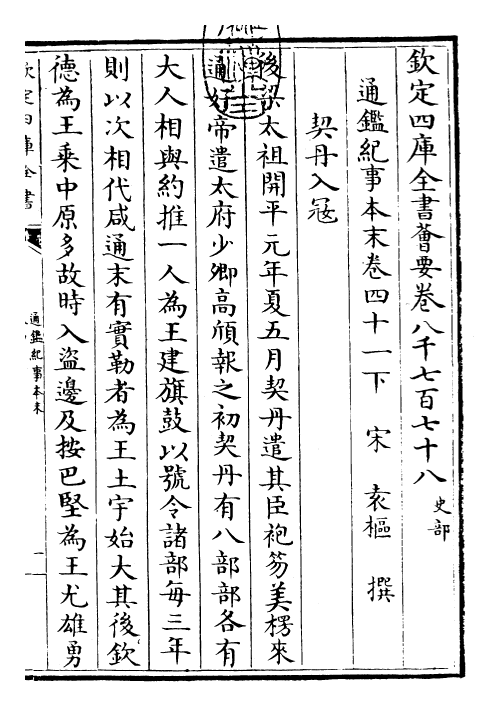 欽定四庫全書薈要卷八千七百七十八 史部
通鑑紀事本末卷四十一下 宋 袁樞 撰
契丹入冦
後梁太祖開平元年夏五月契丹遣其臣袍笏美楞來
通好帝遣太府少卿高頎報之初契丹有八部部各有
大人相與約推一人為王建旗鼓以號令諸部每三年
則以次相代咸通末有實勒者為王土宇始大其後欽
德為王乘中原多故時入盜邊及按巴堅為王尤雄勇
欽定四庫全書
通鑑紀事本末